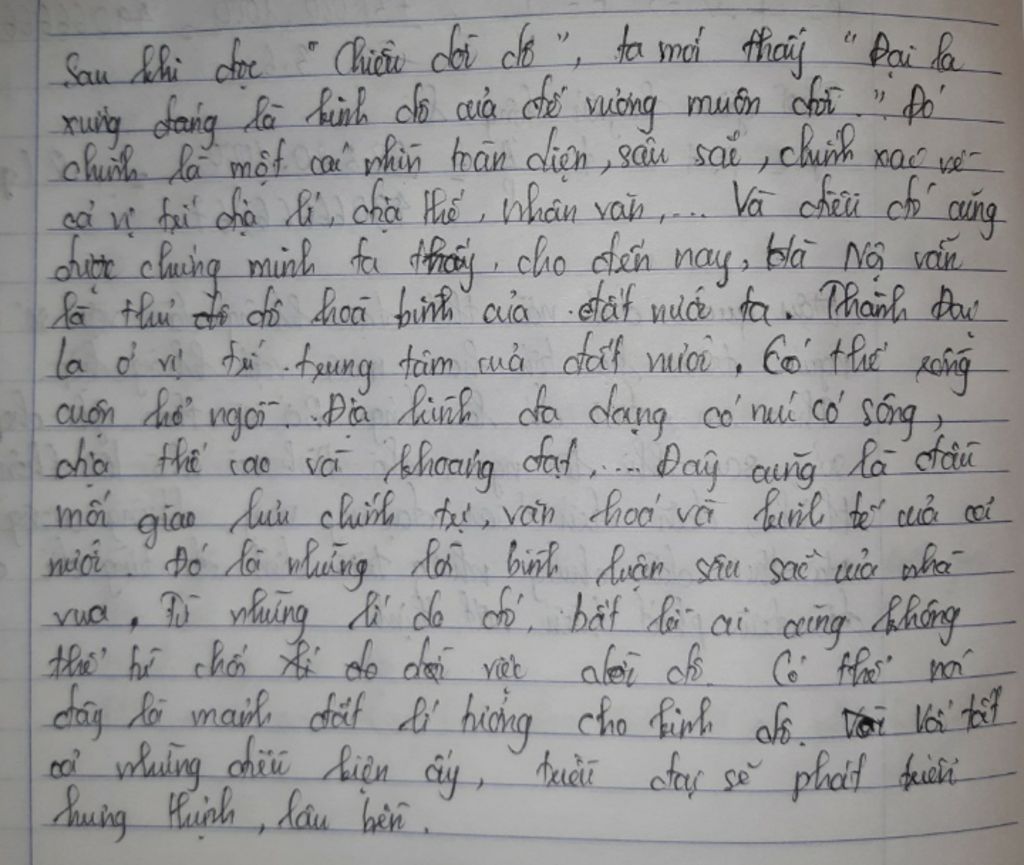 Sau khi đọc " Chiếu dời đô ", ta mới thấy " Đại la
xứng đáng là kinh đô của đế vương muôn đời ". Đó
chính là một cái nhìn toàn diện, sâu sắc, chính xác về
cả vị trí địa lí, địa thế, nhân văn,... Và điều đó cũng
được chứng minh ta thấy, cho đến nay, Hà Nội vẫn
là thủ đô hoà bình của đất nước ta. Thành Đại
la ở vị trí trung tâm của đất nước. Có thế rồng
cuộn hổ ngồi. Địa hình đa dạng có núi có sông,
địa thế cao và khoáng đạt,... Đây cũng là đầu
mối giao lưu chính trị, văn hoá và kinh tế của cả
nước. Đó là những lời bình luận sâu sắc của nhà
vua. Từ những lí do đó, bất kì ai cũng không
thể từ chối việc dời đô. Có thể nói
đây là mảnh đất lí tưởng cho kinh đô. Với tất
cả những điều kiện ấy, triều đại sẽ phát triển
hưng thịnh, lâu bền.